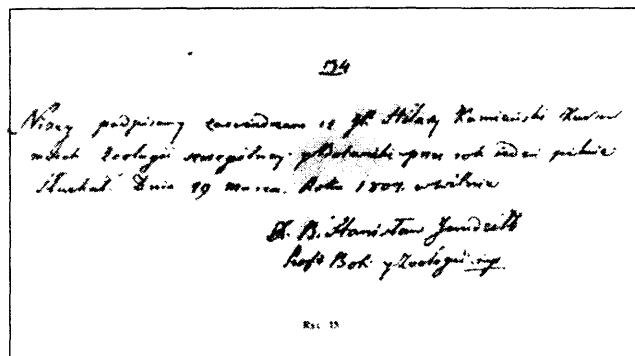 134
Niżey podpisany zaswiadczam iż JP. Hilary Kamieński Kursow
dwóch Zoologii szczególney y Botaniki przez rok ieden pilnie
słuchał. Dnia 19 marca. Roku 1804. w Wilnie
X. B. Stanisław Jundziłł
Proffr Bot. y Zoologii mp
Ryc. 13